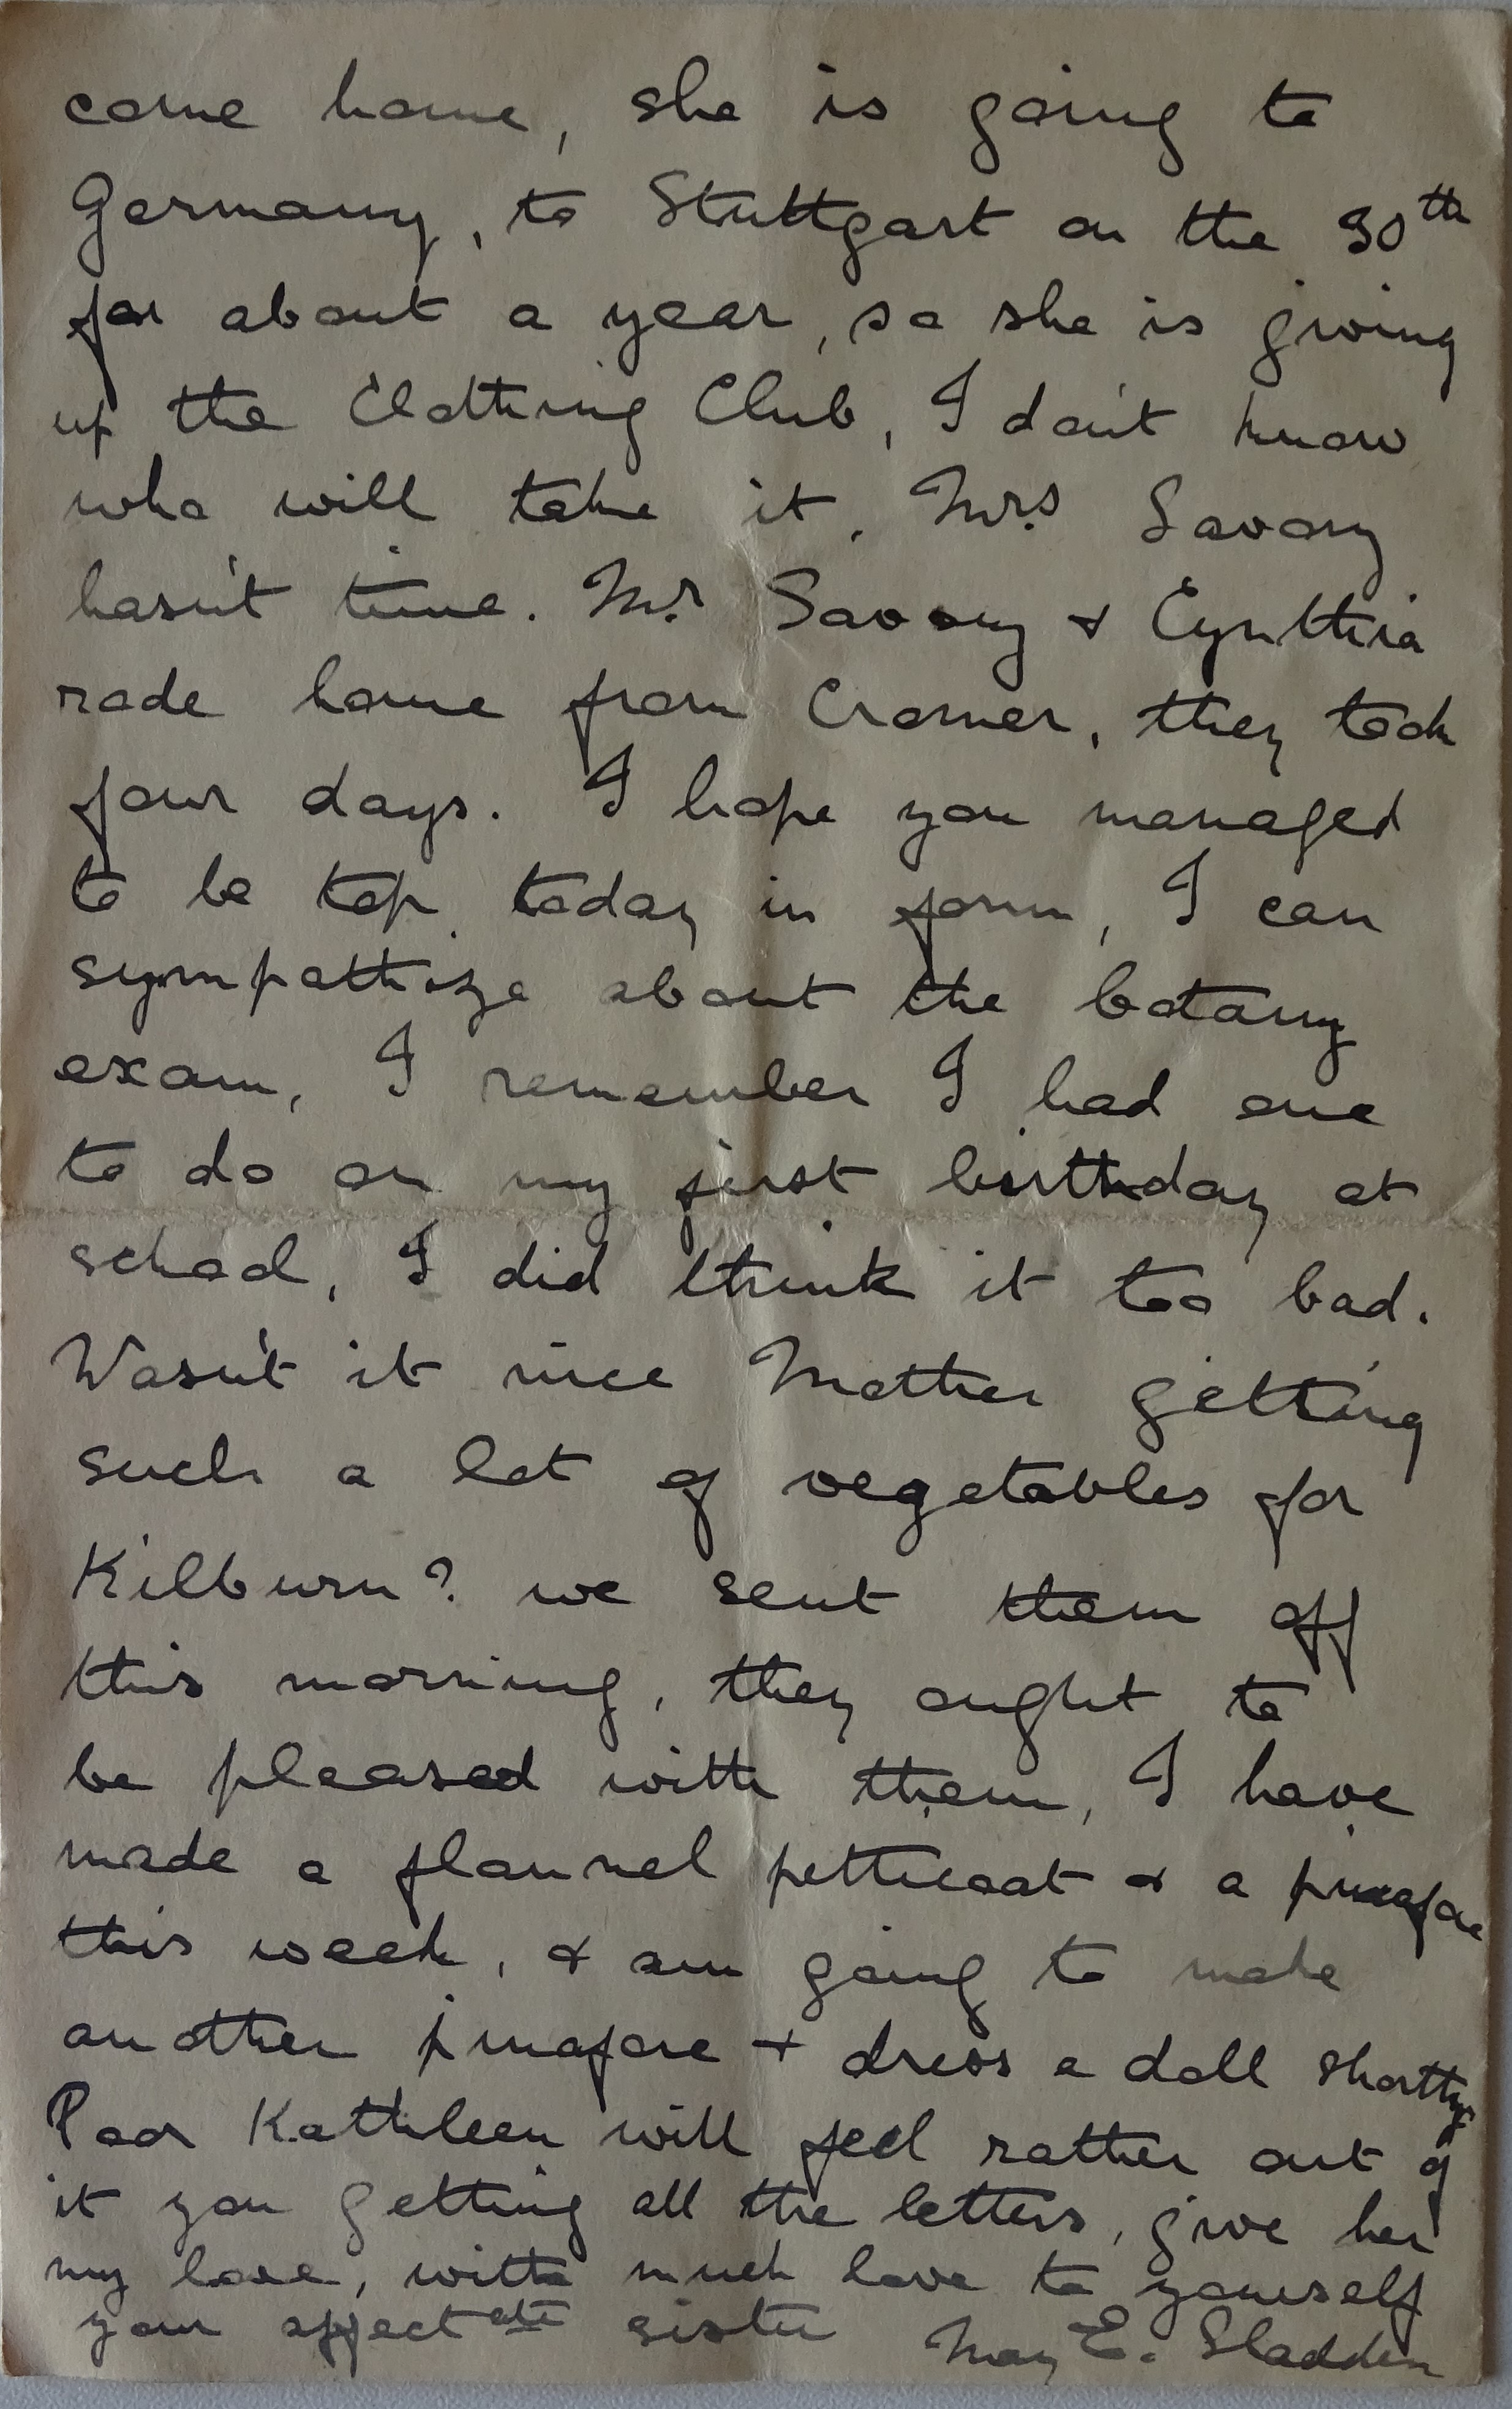 come home, she is going to
Germany, to Stuttgart on the 30th
for about a year, so she is giving
up the Clothing Club, I don't know
who will take it, Mrs Savory
hasn't time. Mr. Savory & Cynthia
rode home from Cromer, they took
four days. I hope you managed
to be top today in form, I can
sympathize about the botany
exam, I remember I had one
to do on my first birthday at
school, I did think it too bad.
Wasn't it nice Mother getting
such a lot of vegetables for
Kilburn? we sent them off
this morning, they ought to
be pleased with them, I have
made a flannel petticoat & a pinafore
this week, & am going to make
another pinafore & dress a doll shortly
Poor Kathleen will feel rather out of
it you getting all the letters, give her
my love, with much love to yourself
your affectate sister May E. Sladden